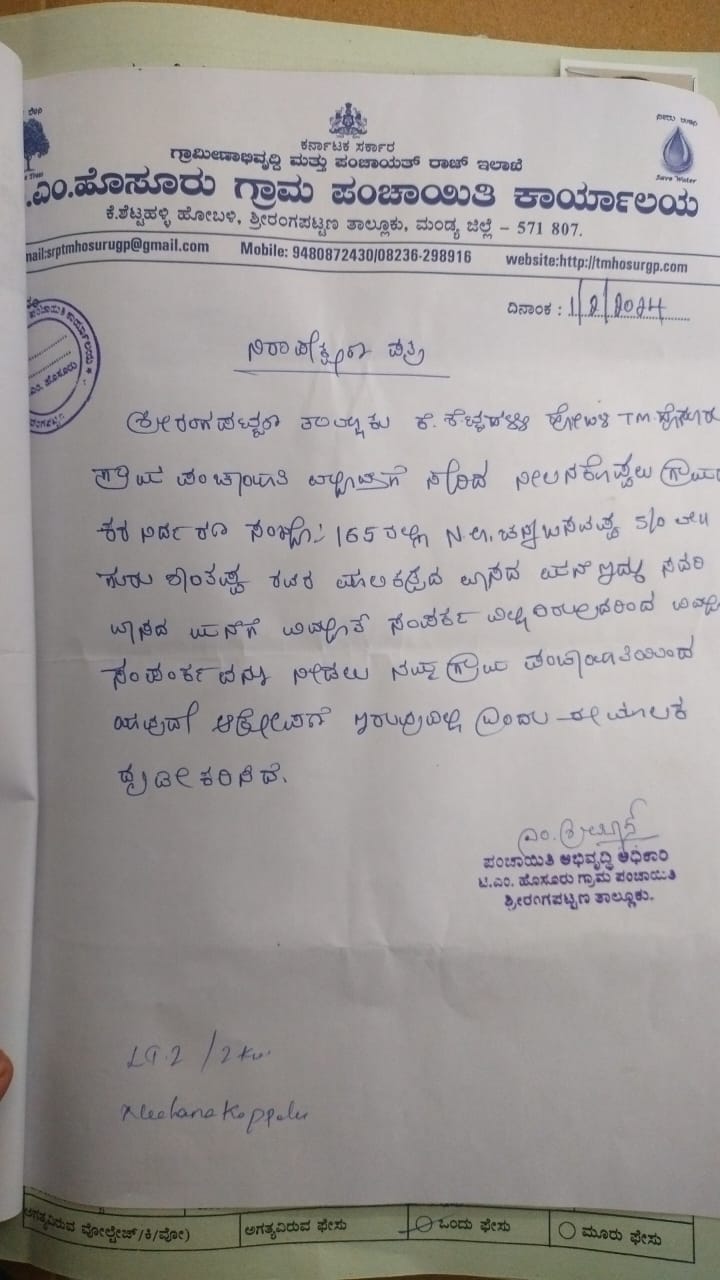 ನೀರು ಉಳಿಸಿ
Save Water
ಕರ್ನಾಟಕ ಸರ್ಕಾರ
ಗ್ರಾಮೀಣಾಭಿವೃದ್ಧಿ ಮತ್ತು ಪಂಚಾಯತ್ ರಾಜ್ ಇಲಾಖೆ
.ಎಂ.ಹೊಸೂರು ಗ್ರಾಮ ಪಂಚಾಯಿತಿ ಕಾರ್ಯಾಲಯ
ಕೆ.ಶೆಟ್ಟಹಳ್ಳಿ ಹೋಬಳಿ, ಶ್ರೀರಂಗಪಟ್ಟಣ ತಾಲ್ಲೂಕು, ಮಂಡ್ಯ ಜಿಲ್ಲೆ - 571 807.
mail:srptmhosurugp@gmail.com Mobile: 9480872430/08236-298916 website:http://tmhosurgp.com
ದಿನಾಂಕ : 1/2/2024
ಪಂಚಾಯಿತಿ ಕಾರ್ಯಾಲಯ
ಎಂ. ಹೊಸೂರು
ನಿರಾಪೇಕ್ಷಣಾ ಪತ್ರ
ಶ್ರೀರಂಗಪಟ್ಟಣ ತಾಲ್ಲೂಕು ಕೆ.ಶೆಟ್ಟಹಳ್ಳಿ ಹೋಬಳಿ TM.ಹೊಸೂರು
ಗ್ರಾಮ ಪಂಚಾಯಿತಿ ವ್ಯಾಪ್ತಿಗೆ ಸೇರಿದ ನೀಲನಕೊಪ್ಪಲು ಗ್ರಾಮದ
165 ರಲ್ಲಿ ಚನ್ನಬಸವಪ್ಪ S/o ಲೇ||
ಗುರುಶಾಂತಪ್ಪ ರವರ ಮಾಲಿಕತ್ವದ ವಾಸದ ಮನೆ ಇದ್ದು ಸದರಿ
ವಾಸದ ಮನೆಗೆ ವಿದ್ಯುತ್ ಸಂಪರ್ಕ ವಿಲ್ಲದಿರುವುದರಿಂದ ವಿದ್ಯುತ್
ಸಂಪರ್ಕವನ್ನು ನೀಡಲು ನಮ್ಮ ಗ್ರಾಮ ಪಂಚಾಯಿತಿಯಿಂದ
ಯಾವುದೇ ಆಕ್ಷೇಪಣೆ ಇರುವುದಿಲ್ಲ ಎಂದು ಈ ಮೂಲಕ
ದೃಢೀಕರಿಸಿದೆ.
ಪಂಚಾಯಿತಿ ಅಭಿವೃದ್ಧಿ ಅಧಿಕಾರಿ
ಟಿ.ಎಂ. ಹೊಸೂರು ಗ್ರಾಮ ಪಂಚಾಯಿತಿ
ಶ್ರೀರಂಗಪಟ್ಟಣ ತಾಲ್ಲೂಕು.
LT.2 / 2 Kw
Neelanakoppalu
ಅಗತ್ಯವಿರುವ ವೋಲ್ಟೇಜ್/ಕಿ/ವೋ) ಅಗತ್ಯವಿರುವ ಫೇಸು ಒಂದು ಫೇಸು ಮೂರು ಫೇಸು